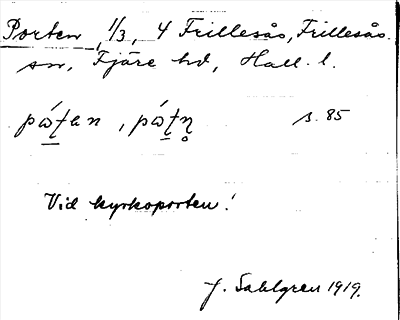 Porten, 1/3, 4 Frillesås, Frillesås
sn, Fjäre hd, Hall. l.
s. 85
Vid kyrkoporten!
J. Sahlgren 1919.